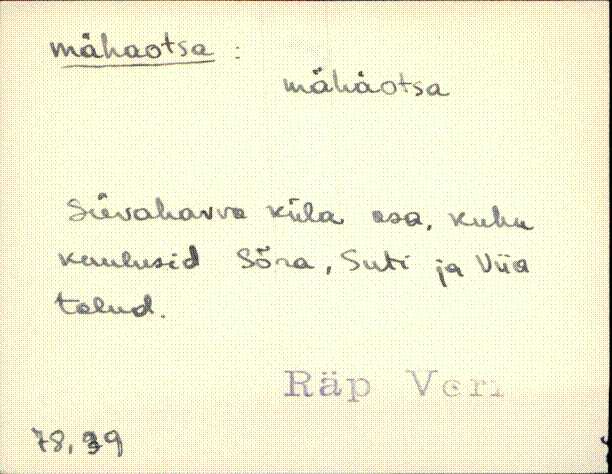 mähaotsa :
mähäotsa
Süvahavva küla osa, kuhu
kuulusid Sõra, Suti ja Viia
talud.
Räp Veri
78, 39